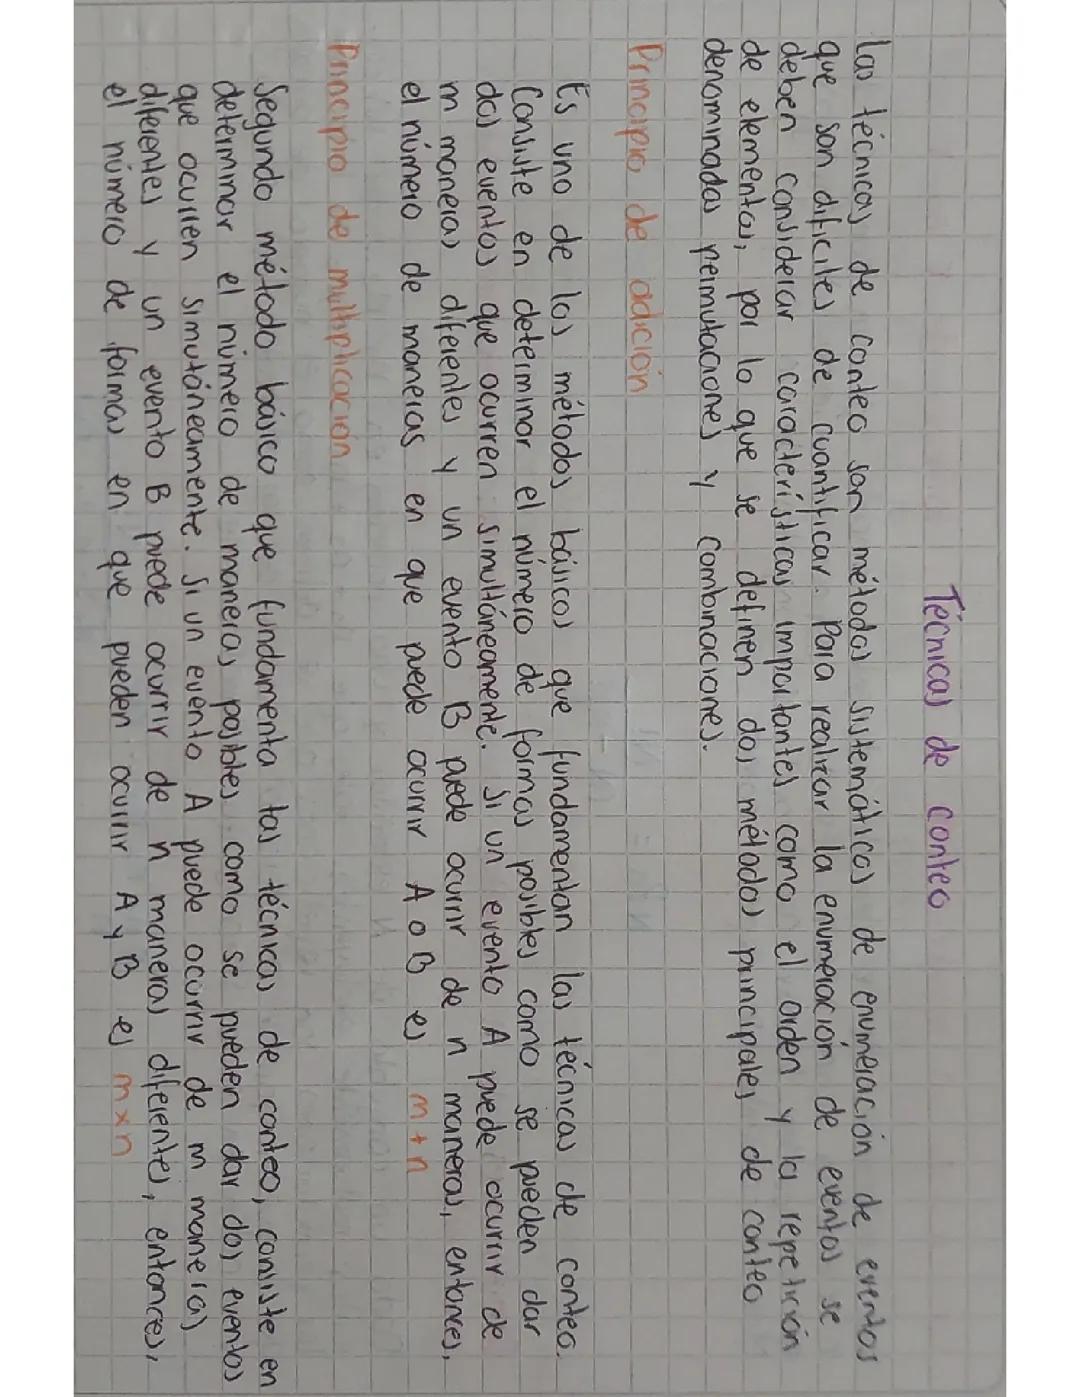 Técnicas de conteo
Las técnicas de conteo son métodos sistemáticos de enumeración de eventos
que son dificiles de cuantificar. Para realizar la enumeración de eventos se
deben considerar características importantes como el orden y la repetición
de elementos, por lo que se definen dos métodos principales de conteo
denominadas permutaciones y combinaciones.
Principio de adición
Es uno de los métodos básicos que fundamentan las técnicas de conteo.
Consiste en determinar el número de formas posibles como se pueden dar
dos eventos que ocurren simultáneamente. Si un evento A puede ocurrir de
m maneras diferentes y un evento B puede ocurrir de n maneras, entonces,
el número de maneras en que puede ocurrir A o B es m+n
Principio de multiplicación
Segundo método básico que fundamenta las técnicas de conteo, consiste en
determinar el número de maneras posibles como se pueden dar dos eventos
que ocurren simutáneamente. Si un evento A puede ocurrir de m maneras
diferentes y un evento B puede ocurrir de n maneras diferentes, entonces,
el número de formas en que pueden ocurrir A y B es m×n